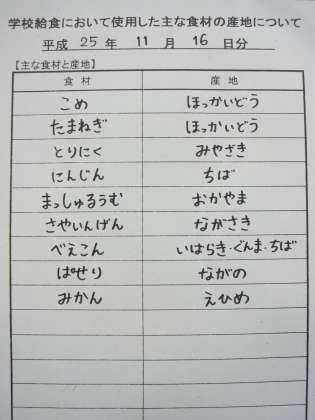 学校給食において使用した主な食材の産地について
平成 25 年 11 月 16 日分
【主な食材と産地】
食材 産地
こめ ほっかいどう
たまねぎ ほっかいどう
とりにく みやざき
にんじん ちば
まっしゅるうむ おかやま
さやいんげん ながさき
べえこん いばらき・ぐんま・ちば
ぱせり ながの
みかん えひめ